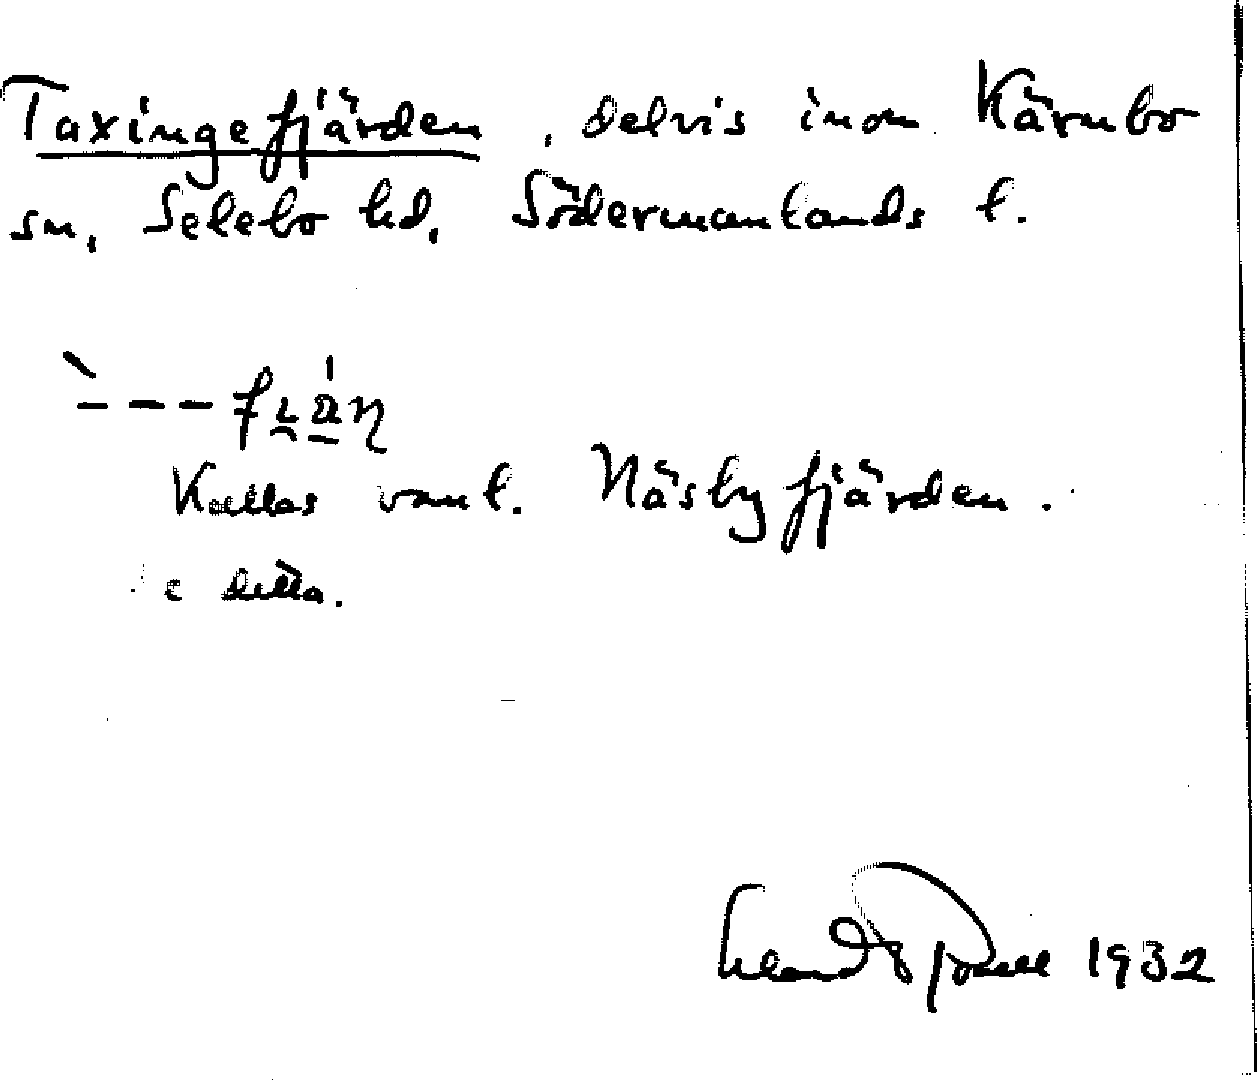 Taxingefjärden, delvis inom Kärnbo
sn, Selebo hd, Södermanlands l.
Kallas vanl. Näsbyfjärden.
e detta.
1932